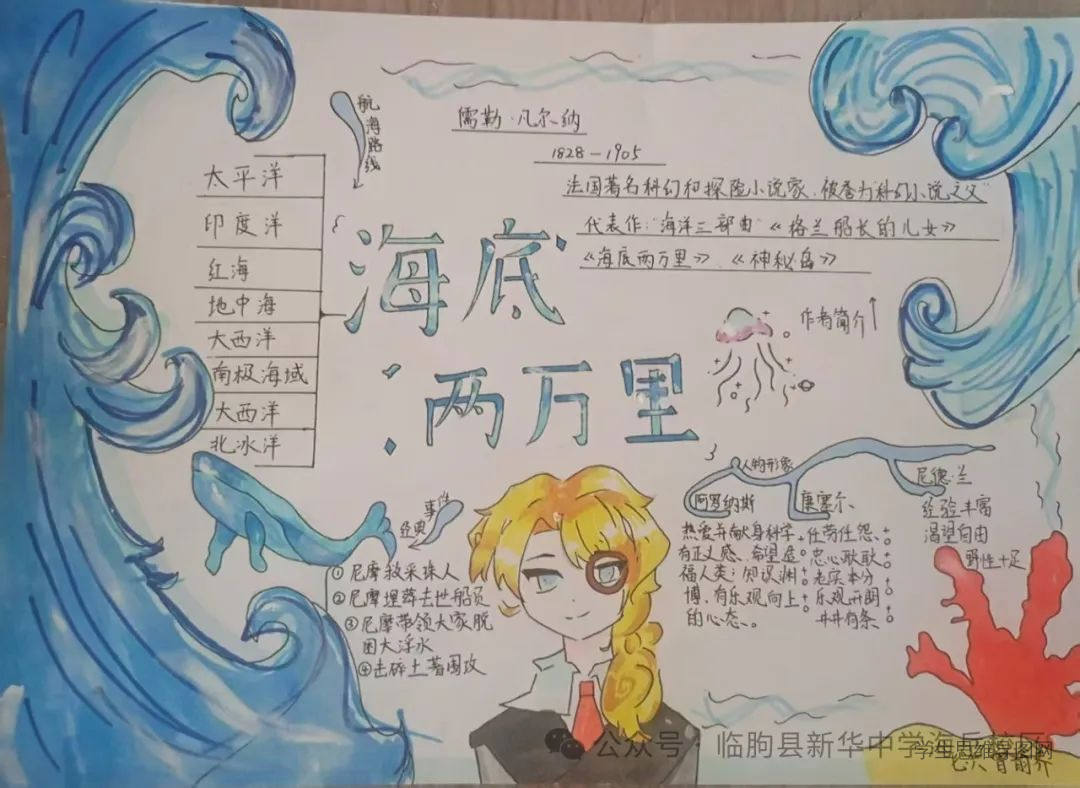 航海路线
儒勒·凡尔纳
1828—1905
法国著名科幻和探险小说家、被誉为"科幻小说之父"
代表作:"海洋三部曲"《格兰船长的儿女》
《海底两万里》、《神秘岛》
作者简介
太平洋
印度洋
红海
地中海
大西洋
南极海域
大西洋
北冰洋
海底
两万里
经典事件
①尼摩救采珠人
②尼摩埋葬去世船员
③尼摩带领大家脱
困大浮冰
④击碎土著围攻
人物形象
阿罗纳斯
热爱并献身科学
有正义感、希望造
福人类:知识渊
博、有乐观向上
的心态、。
康塞尔、
任劳任怨、
忠心耿耿
老实本分
乐观开朗
井井有条、
尼德·兰
经验丰富
渴望自由
野性十足
公众号·临朐县新华中学海岳校区
学生思维导图网
七六